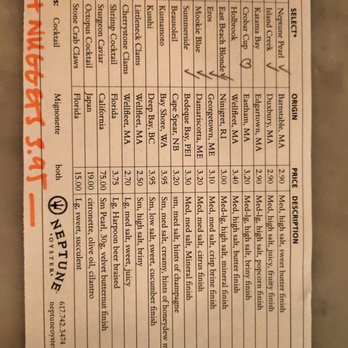 SELECT* ORIGIN PRICE DESCRIPTION
Neptune Pearl Barnstable, MA 2.90 Med. high salt, sweet butter finish
Island Creek Duxbury, MA 2.90 Med. high salt, juicy, fruity finish
Katama Bay Edgartown, MA 2.90 Med-lg, high salt, popcorn finish
Crobar Cup Eastham, MA 3.20 Med-lg, high salt, briny finish
Holbrook Wellfleet, MA 3.40 Med. high salt, butter finish
East Beach Blonde Ninigret, RI 3.00 Med-lg, high salt, mineral finish
Eros Georgetown, ME 3.10 Med. med salt, crisp brine finish
Mookie Blue Damariscotta, ME 3.20 Med. med salt, citrus finish
Summerside Bedeque Bay, PEI 3.30 Med, med salt, Mineral finish
Beausoleil Cape Spear, NB 3.20 sm, med salt, hints of champagne
Kumamoto Bay Shore, WA 3.95 Sm, med salt, creamy, hints of honeydew
Kusshi Deep Bay, BC 3.95 Sm, low salt, sweet, cucumber finish
Littleneck Clams Wellfleet, MA 2.50 Sm, high salt, briny
Cherrystone Clams Wellfleet, MA 2.70 Lg, med salt, sweet, juicy
Shrimp Cocktail Florida 3.75 Lg, Harpoon beer braised
Sturgeon Caviar California 75.00 Sm Pearl, 30g, velvet butternut finish
Octopus Cocktail Japan 19.00 citronette, olive oil, cilantro
Stone Crab Claws Florida 15.00 Lg, sweet, succulent
Cocktail Mignonette both
NUGGETS 3.95
NEPTUNE
OYSTER
617.742.3474
neptuneoyster